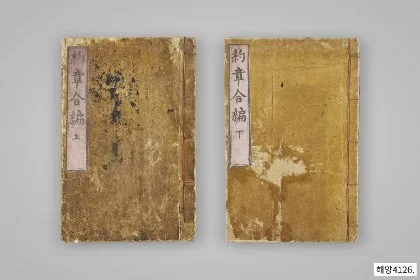 約章合編 上
約章合編 下
해양4126.